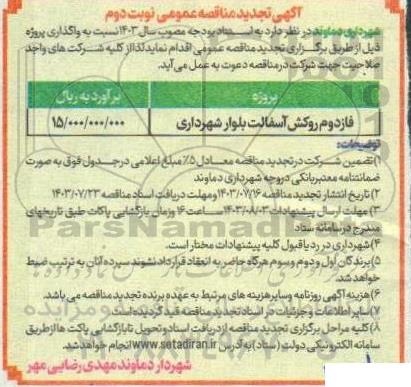 آگهی تجدید مناقصه عمومی نوبت دوم
شهرداری دماوند در نظر دارد به استناد بودجه مصوب سال ۱۴۰۳ نسبت به واگذاری پروژه
ذیل از طریق برگزاری تجدید مناقصه عمومی اقدام نماید لذا از کلیه شرکت های واجد
صلاحیت جهت شرکت در مناقصه دعوت به عمل می آید.
پروژه برآورد به ریال
فاز دوم روکش آسفالت بلوار شهرداری ۱۵/۰۰۰/۰۰۰/۰۰۰
توضیحات:
۱) تضمین شرکت در تجدید مناقصه معادل ۵٪ مبلغ اعلامی در جدول فوق به صورت
ضمانتنامه معتبر بانکی در وجه شهرداری دماوند
۲) تاریخ انتشار تجدید مناقصه ۱۴۰۳/۰۷/۱۶ و مهلت دریافت اسناد مناقصه ۱۴۰۳/۰۷/۲۳
۳) مهلت ارسال پیشنهادات ۱۴۰۳/۰۸/۰۳ ساعت ۱۶ و زمان بازگشایی پاکات طبق تاریخهای
مندرج در سامانه ستاد
۴) شهرداری در رد یا قبول کلیه پیشنهادات مختار است.
۵) برندگان اول و دوم و سوم هرگاه حاضر به انعقاد قرارداد نشوند سپرده آنان به ترتیب ضبط
خواهد شد.
۶) هزینه آگهی روزنامه و سایر هزینه های مرتبط به عهده برنده تجدید مناقصه می باشد.
۷) سایر اطلاعات و جزئیات در اسناد تجدید مناقصه قید گردیده است.
۸) کلیه مراحل برگزاری تجدید مناقصه از دریافت اسناد و تحویل تا بازگشایی پاکت ها از طریق
سامانه الکترونیکی دولت (ستاد) به آدرس www.setadiran.ir انجام خواهد شد.
شهردار دماوند مهدی رضایی مهر